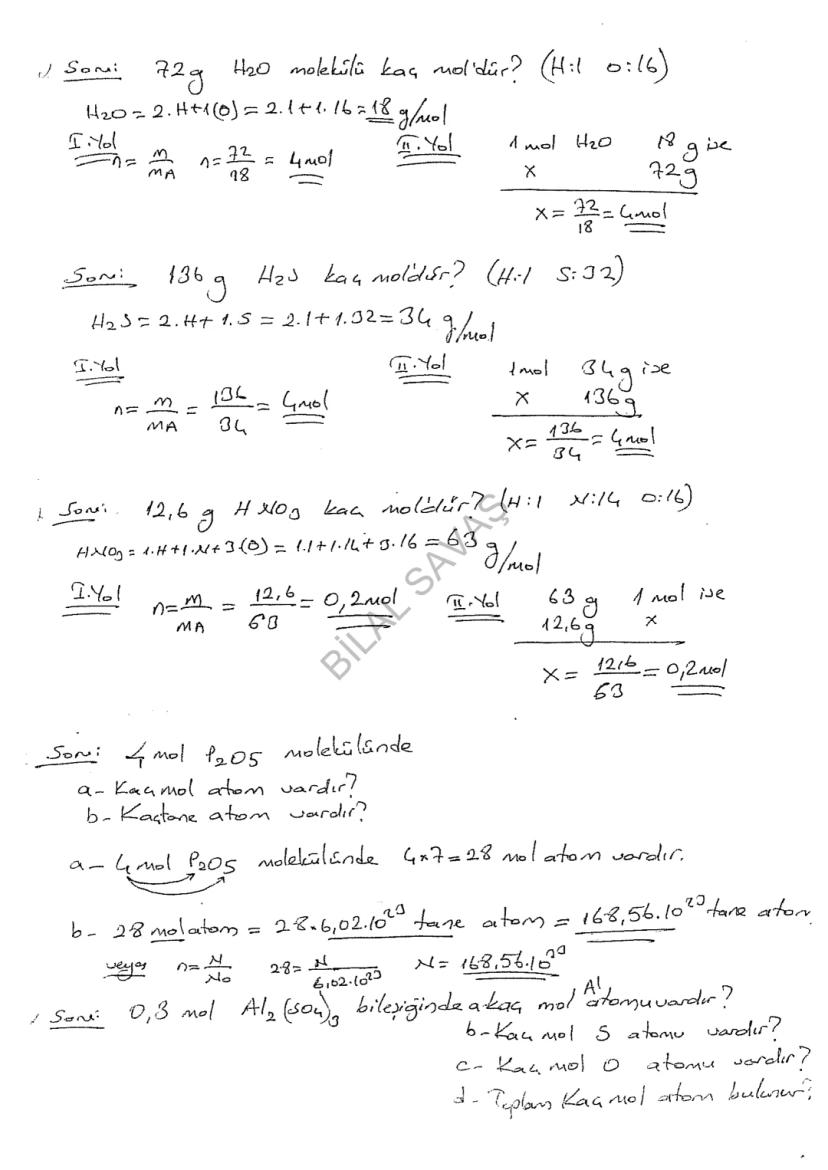 Soru: 72g H2O molekülü kaç mol'dür? (H:1 O:16)
H2O = 2.H+1(O) = 2.1+1.16 = 18 g/mol
I.Yol n = m/MA n = 72/18 = 4mol II.Yol 1 mol H2O 18 g ise
x 72g
x = 72/18 = 4mol
Soru: 136 g H2S kaç moldür? (H:1 S:32)
H2S = 2.H+ 1.S = 2.1+1.32 = 34 g/mol
I.Yol n = m/MA = 136/34 = 4mol II.Yol 1mol 34g ise
x 136g
x = 136/34 = 4mol
Soru: 12,6 g HNO3 kaç mol'dür? (H:1 N:14 O:16)
HNO3 = 1.H+1.N+3(O) = 1.1+1.14+3.16 = 63 g/mol
I.Yol n = m/MA = 12,6/63 = 0,2mol II.Yol 63 g 1 mol ise
12,6g x
x = 12,6/63 = 0,2mol
BİLAL SAVAŞ
Soru: 4 mol P2O5 molekülünde
a- Kaç mol atom vardır?
b- Kaç tane atom vardır?
a- 4 mol P2O5 molekülünde 4x7=28 mol atom vardır.
b- 28 mol atom = 28x6,02.10^23 tane atom = 168,56.10^23 tane atom
veya n = N/No 28 = N/6,02.10^23 N = 168,56.10^23
Soru: 0,3 mol Al2(SO4)3 bileşiğinde a-kaç mol Al atomu vardır?
b- Kaç mol S atomu vardır?
c- Kaç mol O atomu vardır?
d- Toplam Kaç mol atom bulunur?